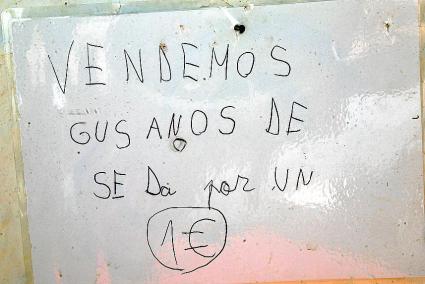 VENDEMOS
GUSANOS DE
SEDa por UN
1€